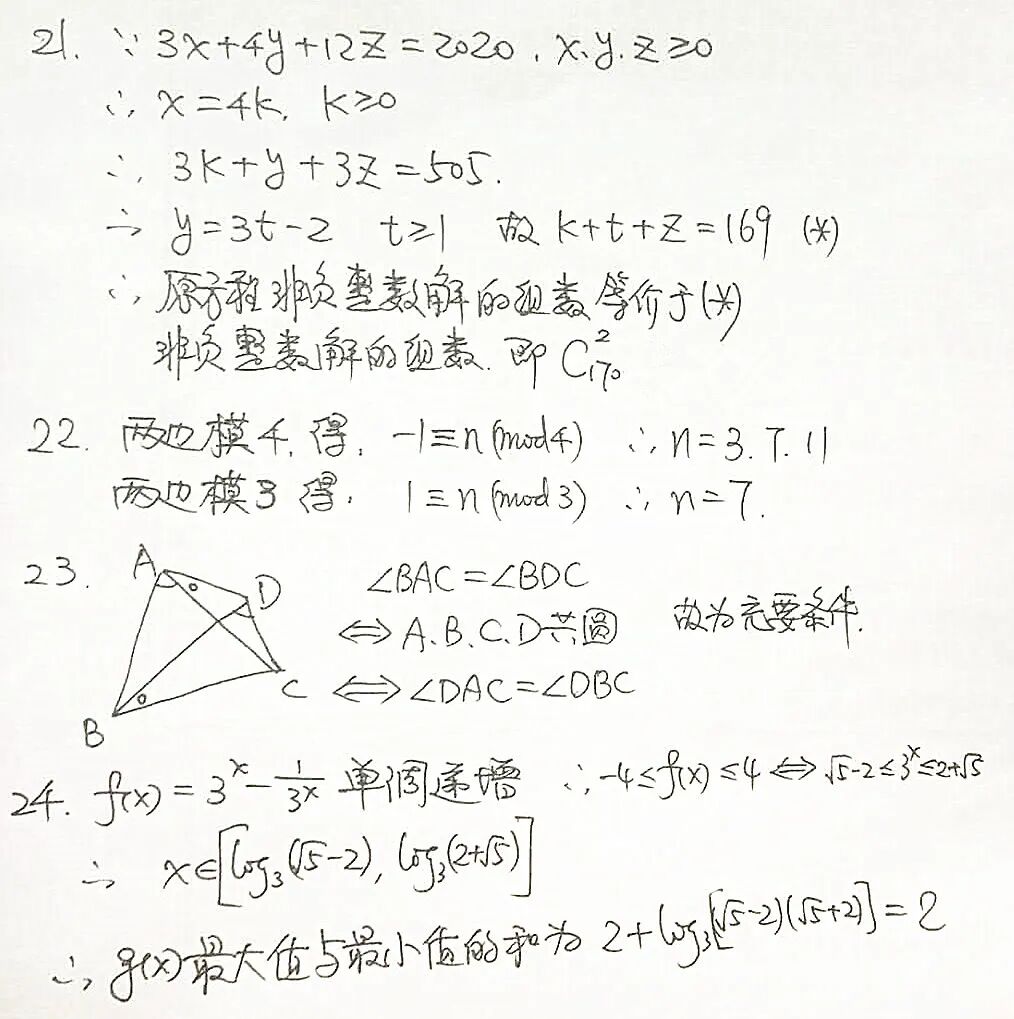 21. ∵ 3x+4y+12z=2020, x.y.z≥0
∴ x=4k, k≥0
∴ 3k+y+3z=505.
∴ y=3t-2 t≥1 故 k+t+z=169 (*)
∴ 原方程非负整数解的组数等价于(*)
非负整数解的组数. 即 C²₁₇₀
22. 两边模4, 得, -1≡n(mod4) ∴ n=3.7.11
两边模3得, 1≡n(mod3) ∴ n=7.
23. A D B C
∠BAC=∠BDC
⇔ A.B.C.D共圆 故为充要条件.
⇔ ∠DAC=∠DBC
24. f(x)=3^x-1/3^x 单调递增 ∴ -4≤f(x)≤4 ⇔ √5-2≤3^x≤2+√5
∴ x∈[log₃(√5-2), log₃(2+√5)]
∴ g(x)最大值与最小值的和为 2+log₃[(√5-2)(√5+2)]=2